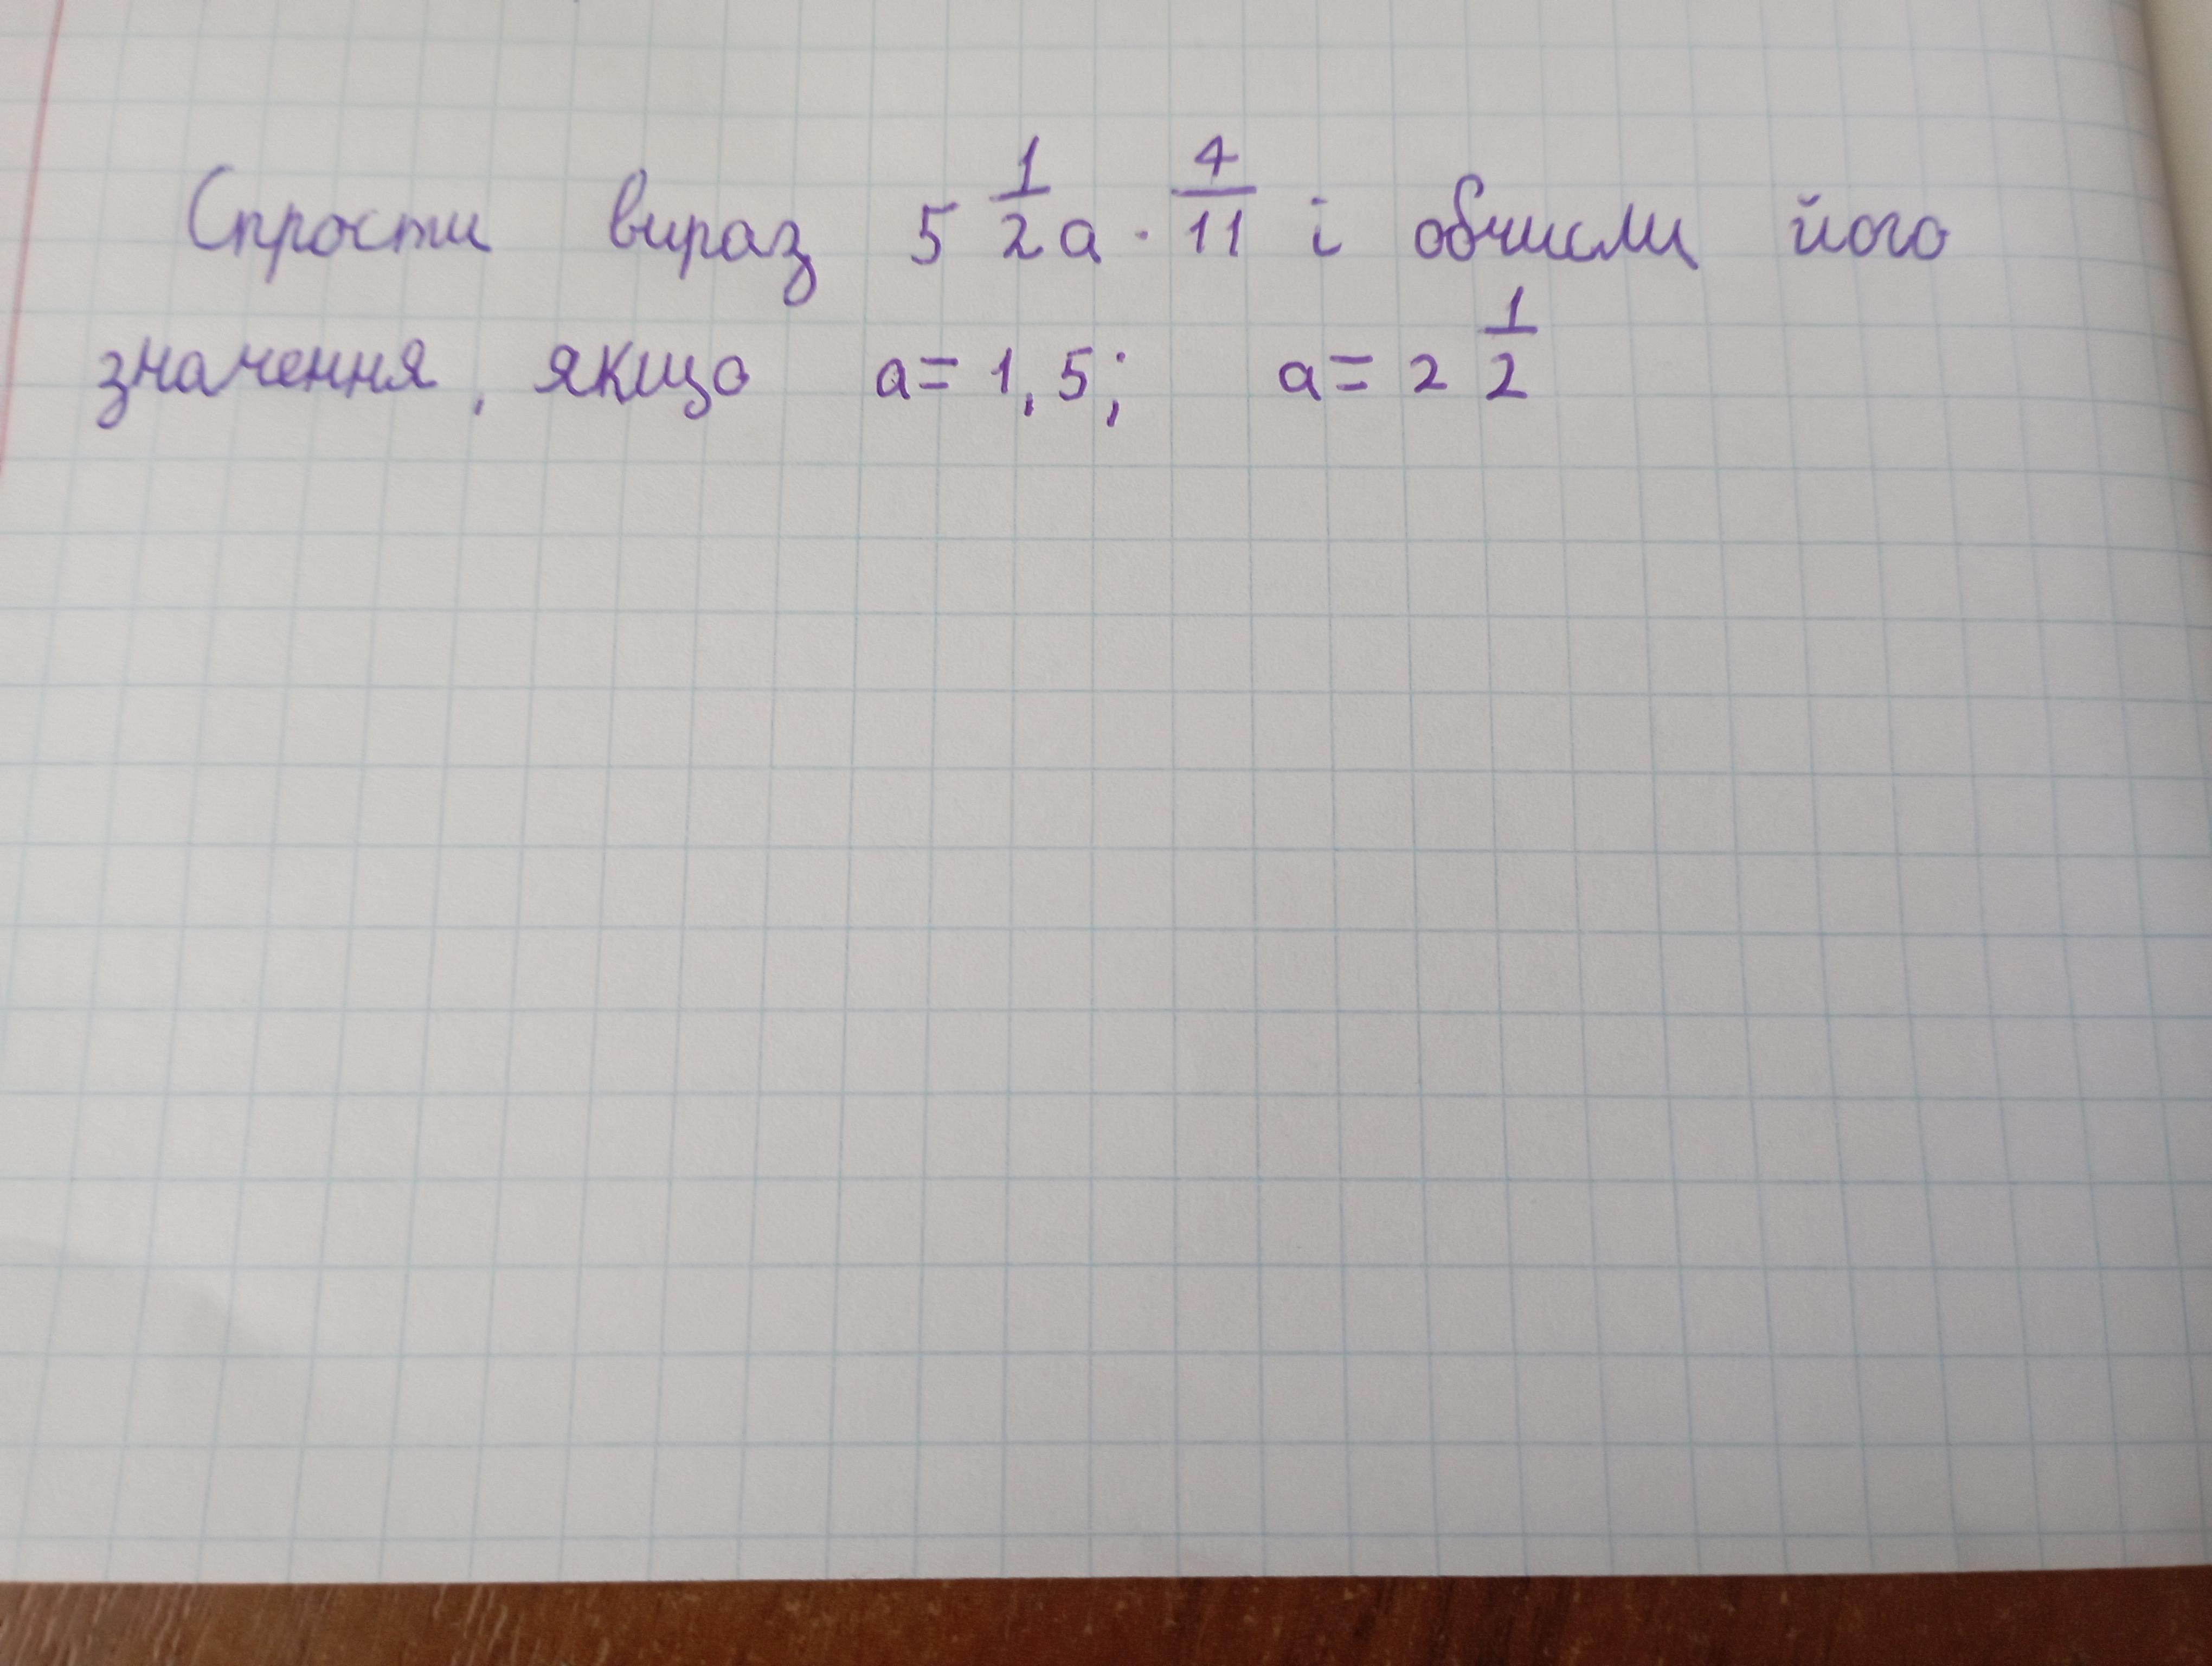 Спрости вираз 5 1/2 a · 4/11 і обчисли його
значення, якщо a = 1,5; a = 2 1/2